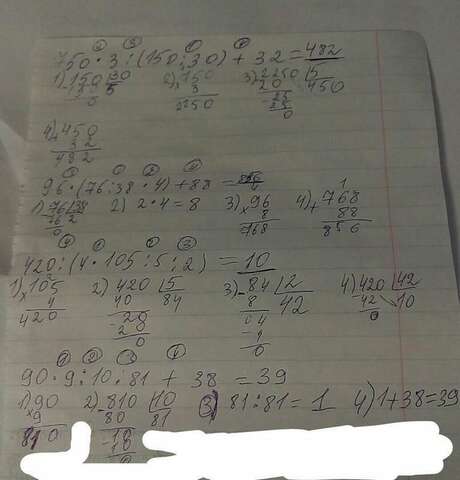 ② ③ ① ④
750 · 3 : (150 : 30) + 32 = 482
1) 150 30 2) 750 3) 2250 5
- 150 5 × 3 - 20 450
0 2250 25
- 25
0
4) + 450
32
482
③ ① ② ④
96 · (76 : 38 · 4) + 88 =
1) 76 38 2) 2 · 4 = 8 3) × 96 4) + 768
76 2 8 88
0 768 856
④ ① ② ③
420 : (4 · 105 : 5 : 2) = 10
1) × 105 2) 420 5 3) - 84 2 4) 420 42
4 40 84 8 42 - 42 10
420 - 20 04 0
20 - 4
0 0
① ② ③ ④
90 · 9 : 10 : 81 + 38 = 39
1) × 90 2) - 810 10 3) 81 : 81 = 1 4) 1 + 38 = 39
9 80 81
810 - 10
10
0